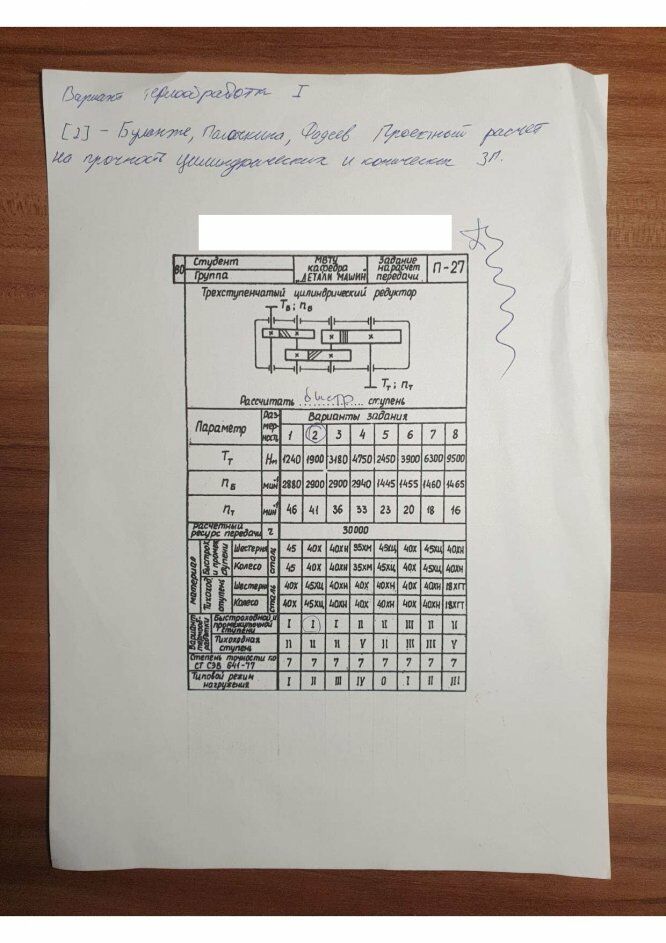 Вариант термообработки I
[2] - Буланже, Палочкина, Фадеев Проектный расчет
на прочность цилиндрических и конических ЗП.
80 Студент МВТУ Задание П-27
Группа кафедра на расчет
"ДЕТАЛИ МАШИН" передачи
Трехступенчатый цилиндрический редуктор
Tб; nб
Tт; nт
Рассчитать быстр. ступень
Параметр Размерность Варианты задания
1 2 3 4 5 6 7 8
Tт Нм 1240 1900 3180 4750 2450 3900 6300 9500
nб мин⁻¹ 2880 2900 2900 2940 1445 1455 1460 1465
nт мин⁻¹ 46 41 36 33 23 20 18 16
расчетный ресурс передачи ч 30000
материал Быстрох. и промеж. ступени Шестерня сталь 45 40Х 40ХН 35ХМ 45ХЦ 40Х 45ХЦ 40ХН
Колесо 45 40Х 40ХН 35ХМ 45ХЦ 40Х 40ХН 40ХН
Тихоход. ступень Шестерня сталь 40Х 45ХЦ 40ХН 40Х 40ХН 40Х 40ХН 18ХГТ
Колесо 40Х 45ХЦ 40ХН 40Х 40ХН 40Х 40ХН 18ХГТ
Вариант термообработки Быстроходной и промежуточной ступени I I I II II III II II
Тихоходная ступень II II II V II III III V
Степень точности по СТ СЭВ 641-77 7 7 7 7 7 7 7 7
Типовой режим нагружения I II III IV 0 I II III